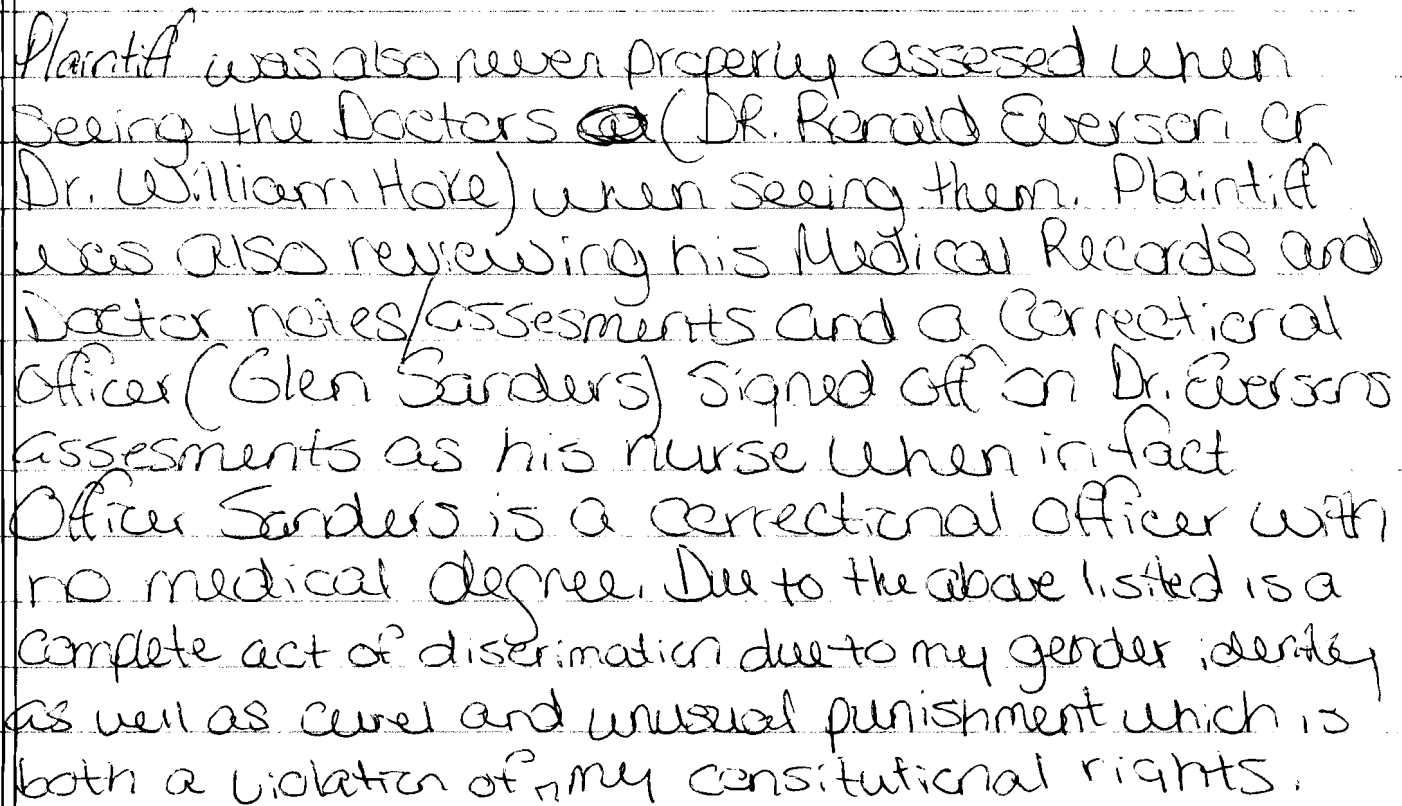 Plaintiff was also never properly assesed when
seeing the Doctors (DR. Ronald Everson or
Dr. William Hoke) when seeing them. Plaintiff
was also reviewing his Medical Records and
Doctor notes/assesments and a Correctional
Officer (Glen Sanders) signed off on Dr. Eversons
assesments as his nurse when in fact
Officer Sanders is a correctional officer with
no medical degree. Due to the above listed is a
complete act of discrimation due to my gender identity
as well as curel and unusual punishment which is
both a violation of my consitutional rights.